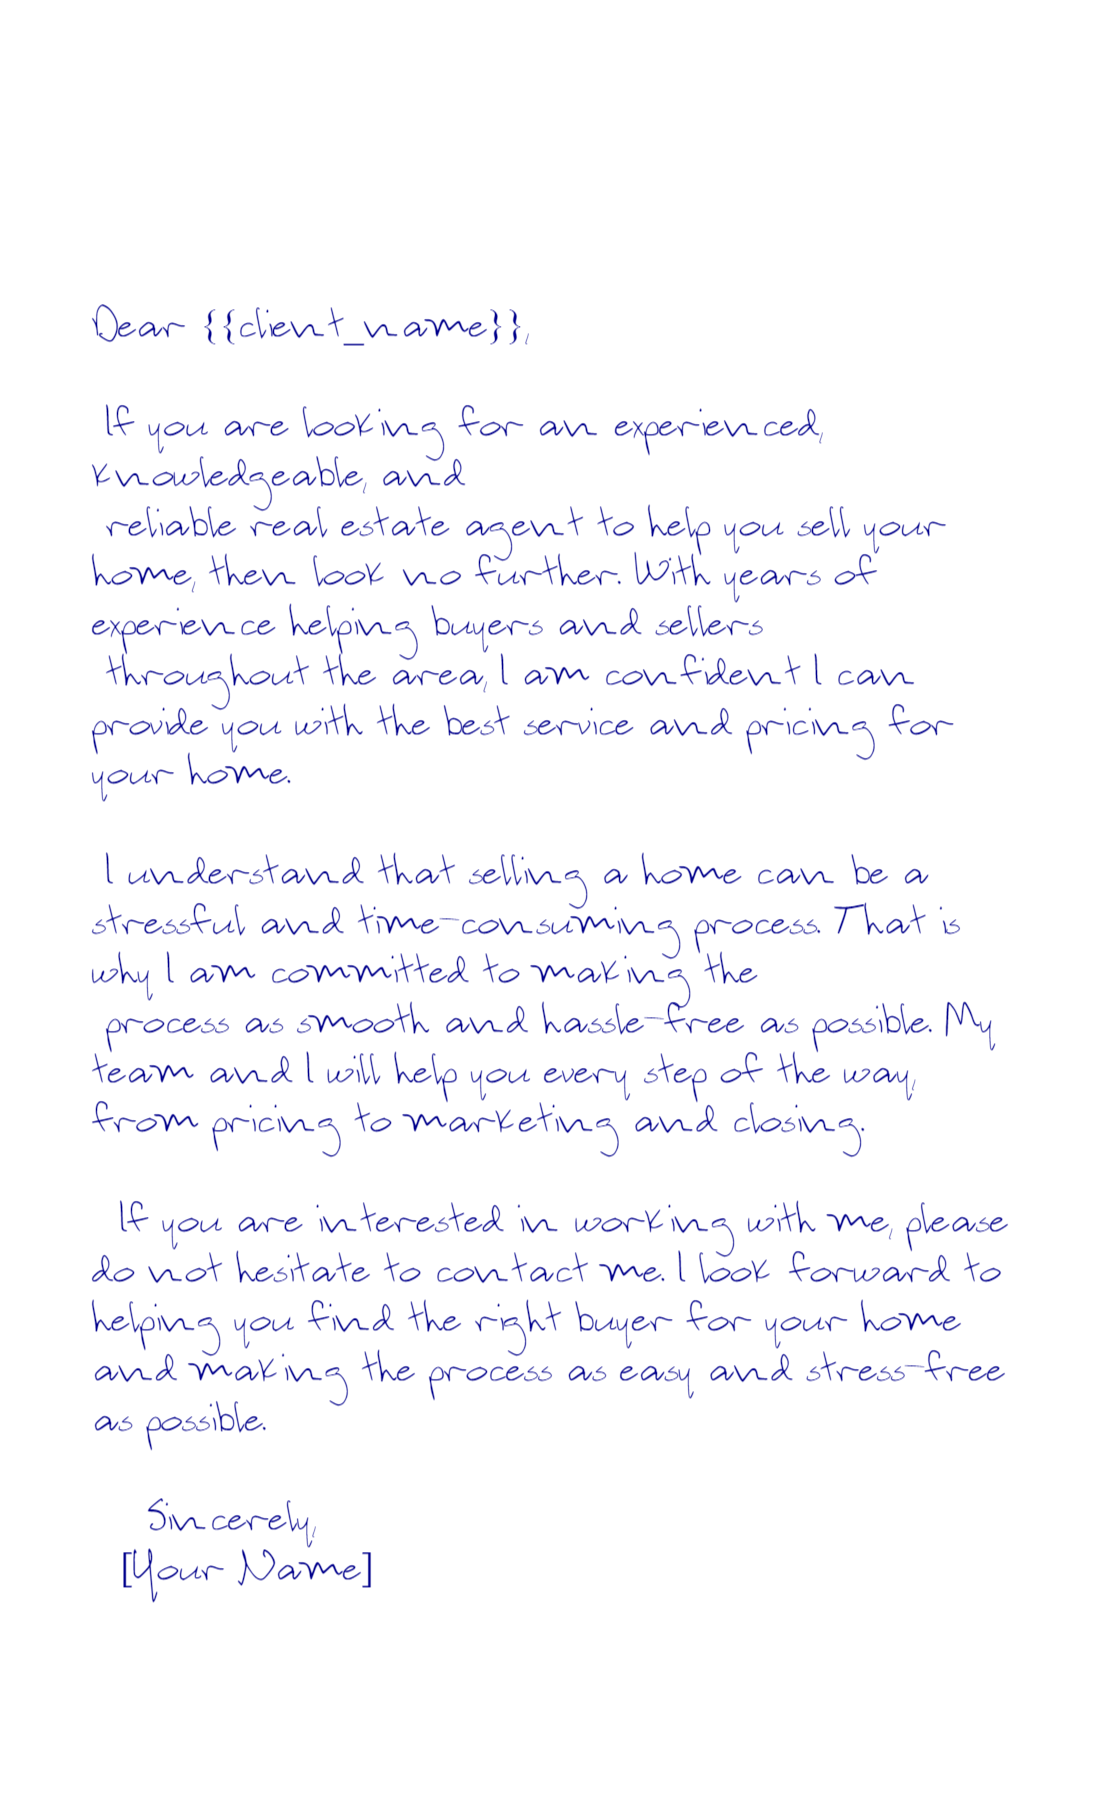 Dear {{client_name}},
If you are looking for an experienced,
knowledgeable, and
reliable real estate agent to help you sell your
home, then look no further. With years of
experience helping buyers and sellers
throughout the area, I am confident I can
provide you with the best service and pricing for
your home.
I understand that selling a home can be a
stressful and time-consuming process. That is
why I am committed to making the
process as smooth and hassle-free as possible. My
team and I will help you every step of the way,
from pricing to marketing and closing.
If you are interested in working with me, please
do not hesitate to contact me. I look forward to
helping you find the right buyer for your home
and making the process as easy and stress-free
as possible.
Sincerely,
[Your Name]